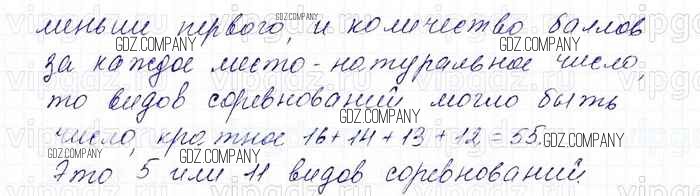 меньше первого, и количество баллов
за каждое место - натуральное число,
то видов соревнований могло быть
число, кратное 16+14+13+12=55.
Это 5 или 11 видов соревнований.
GDZ.COMPANY
GDZ.COMPANY
GDZ.COMPANY
GDZ.COMPANY
GDZ.COMPANY
GDZ.COMPANY
GDZ.COMPANY
GDZ.COMPANY
GDZ.COMPANY
GDZ.COMPANY